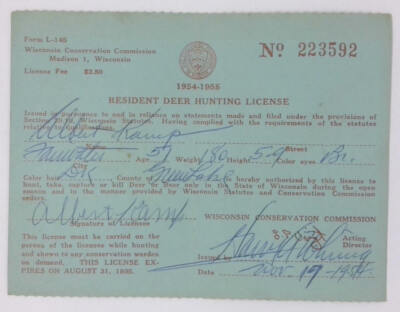 Form L-146
Wisconsin Conservation Commission
Madison 1, Wisconsin
License Fee $2.50
No 223592
1954-1955
RESIDENT DEER HUNTING LICENSE
Issued pursuant to and in reliance on statements made and filed under the provisions of
Section 29.10, Wisconsin Statutes. Having complied with the requirements of the statutes
relative to qualifications,
Albert Kamp
Name Street
Age 57 Weight 180 Height 5-9 Color eyes Br.
Color hair DK County of is hereby authorized by this license to
hunt, take, capture or kill Deer or Bear only in the State of Wisconsin during the open
season and in the manner provided by Wisconsin Statutes and Conservation Commission
orders.
Albert Kamp
Signature of Licensee
WISCONSIN CONSERVATION COMMISSION
This license must be carried on the
person of the licensee while hunting
and shown to any conservation warden
on demand. THIS LICENSE EX-
PIRES ON AUGUST 31, 1955.
Acting
Director
Issued by
Date Nov. 19-1954